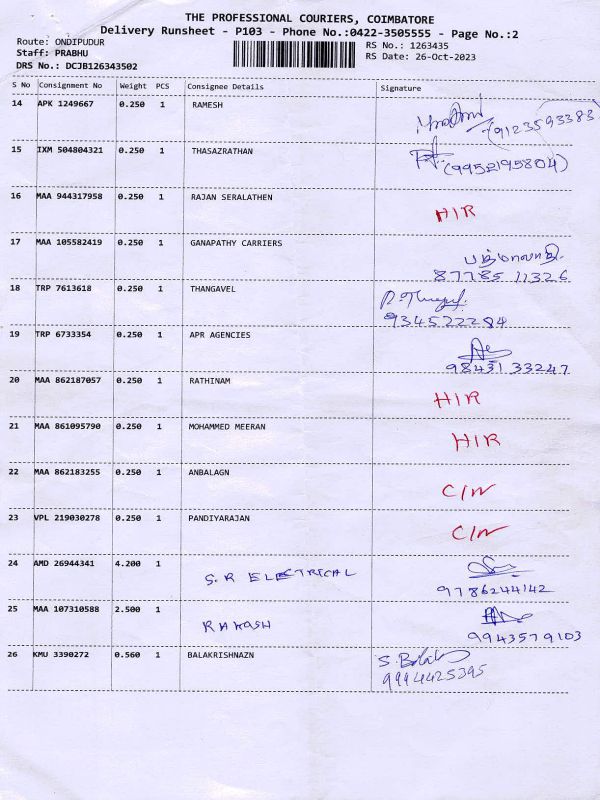 THE PROFESSIONAL COURIERS, COIMBATORE
Delivery Runsheet - P103 - Phone No.:0422-3505555 - Page No.:2
Route: ONDIPUDUR
Staff: PRABHU
DRS No.: DCJB126343502
RS No.: 1263435
RS Date: 26-Oct-2023
S No Consignment No Weight PCS Consignee Details Signature
14 APK 1249667 0.250 1 RAMESH
(9123593383)
15 IXM 504804321 0.250 1 THASAZRATHAN
(9952195804)
16 MAA 944317958 0.250 1 RAJAN SERALATHEN
HIR
17 MAA 105582419 0.250 1 GANAPATHY CARRIERS
87785 11326
18 TRP 7613618 0.250 1 THANGAVEL
934522284
19 TRP 6733354 0.250 1 APR AGENCIES
98431 33247
20 MAA 862187057 0.250 1 RATHINAM
HIR
21 MAA 861095790 0.250 1 MOHAMMED MEERAN
HIR
22 MAA 862183255 0.250 1 ANBALAGN
C/N
23 VPL 219030278 0.250 1 PANDIYARAJAN
C/N
24 AMD 26944341 4.200 1
S.R ELECTRICAL
9786244142
25 MAA 107310588 2.500 1
RAKOSH
9943579103
26 KMU 3390272 0.560 1 BALAKRISHNAZN
9994425395